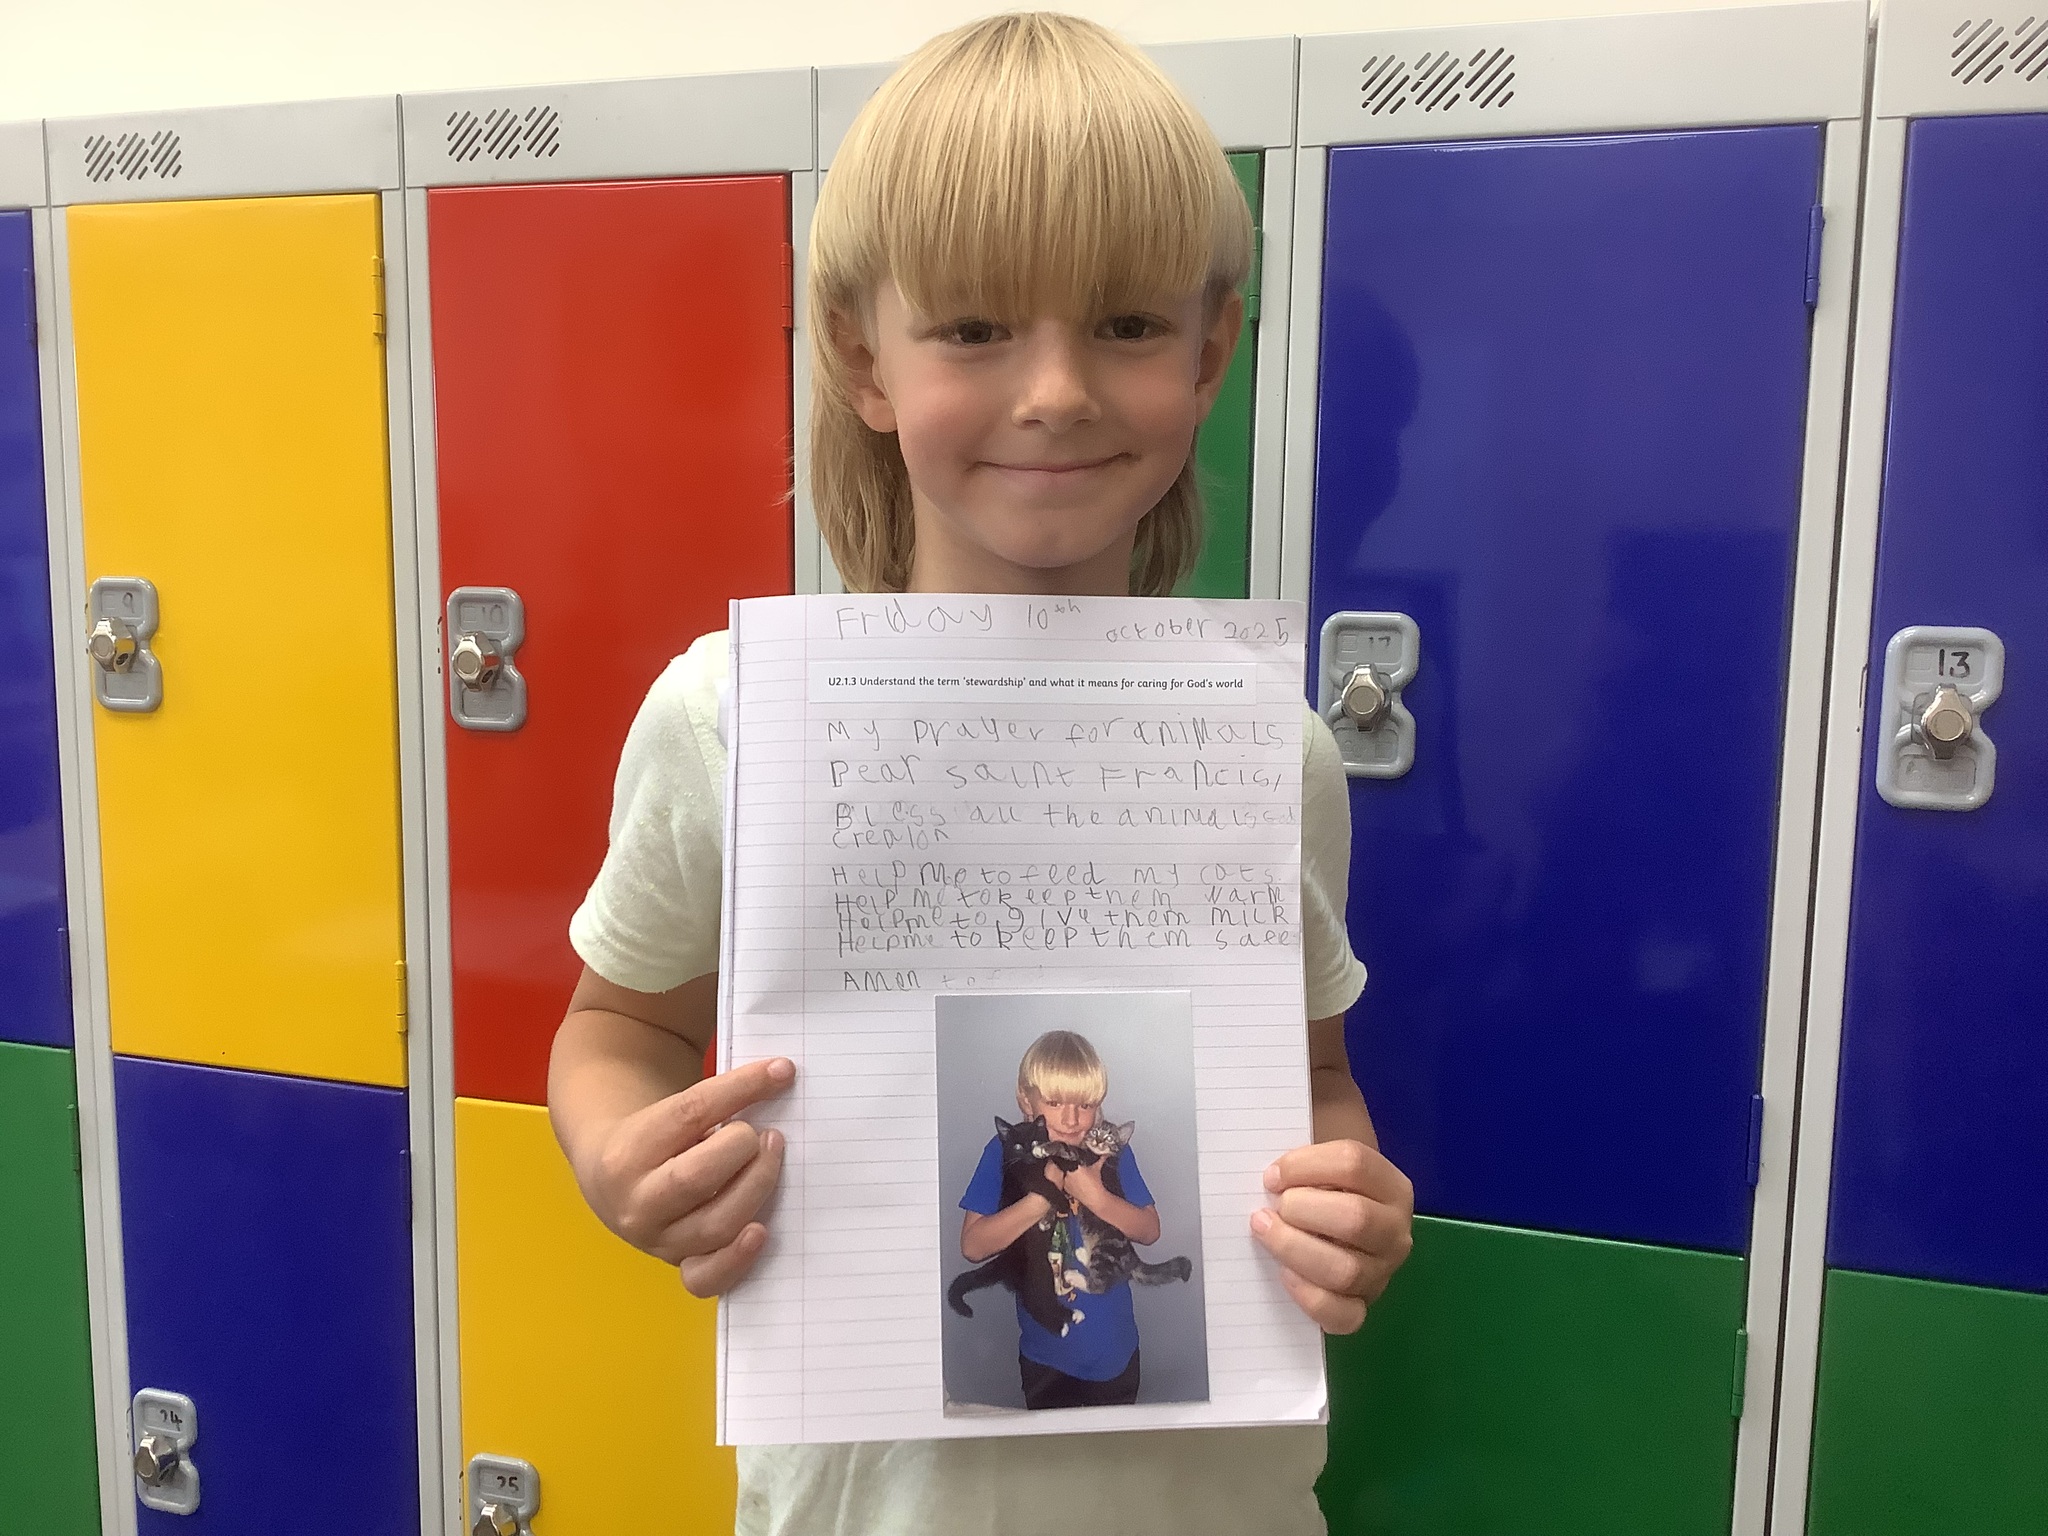 Friday 10th october 2025
U2.1.3 Understand the term 'stewardship' and what it means for caring for God's world
My prayer for animals
Dear saint Francis,
Bless all the animals God
crealon
Help me to feed my cats.
Help me to keep them warm
Help me to give them milk
Help me to keep them safe
Amen
9
10
13
24
25